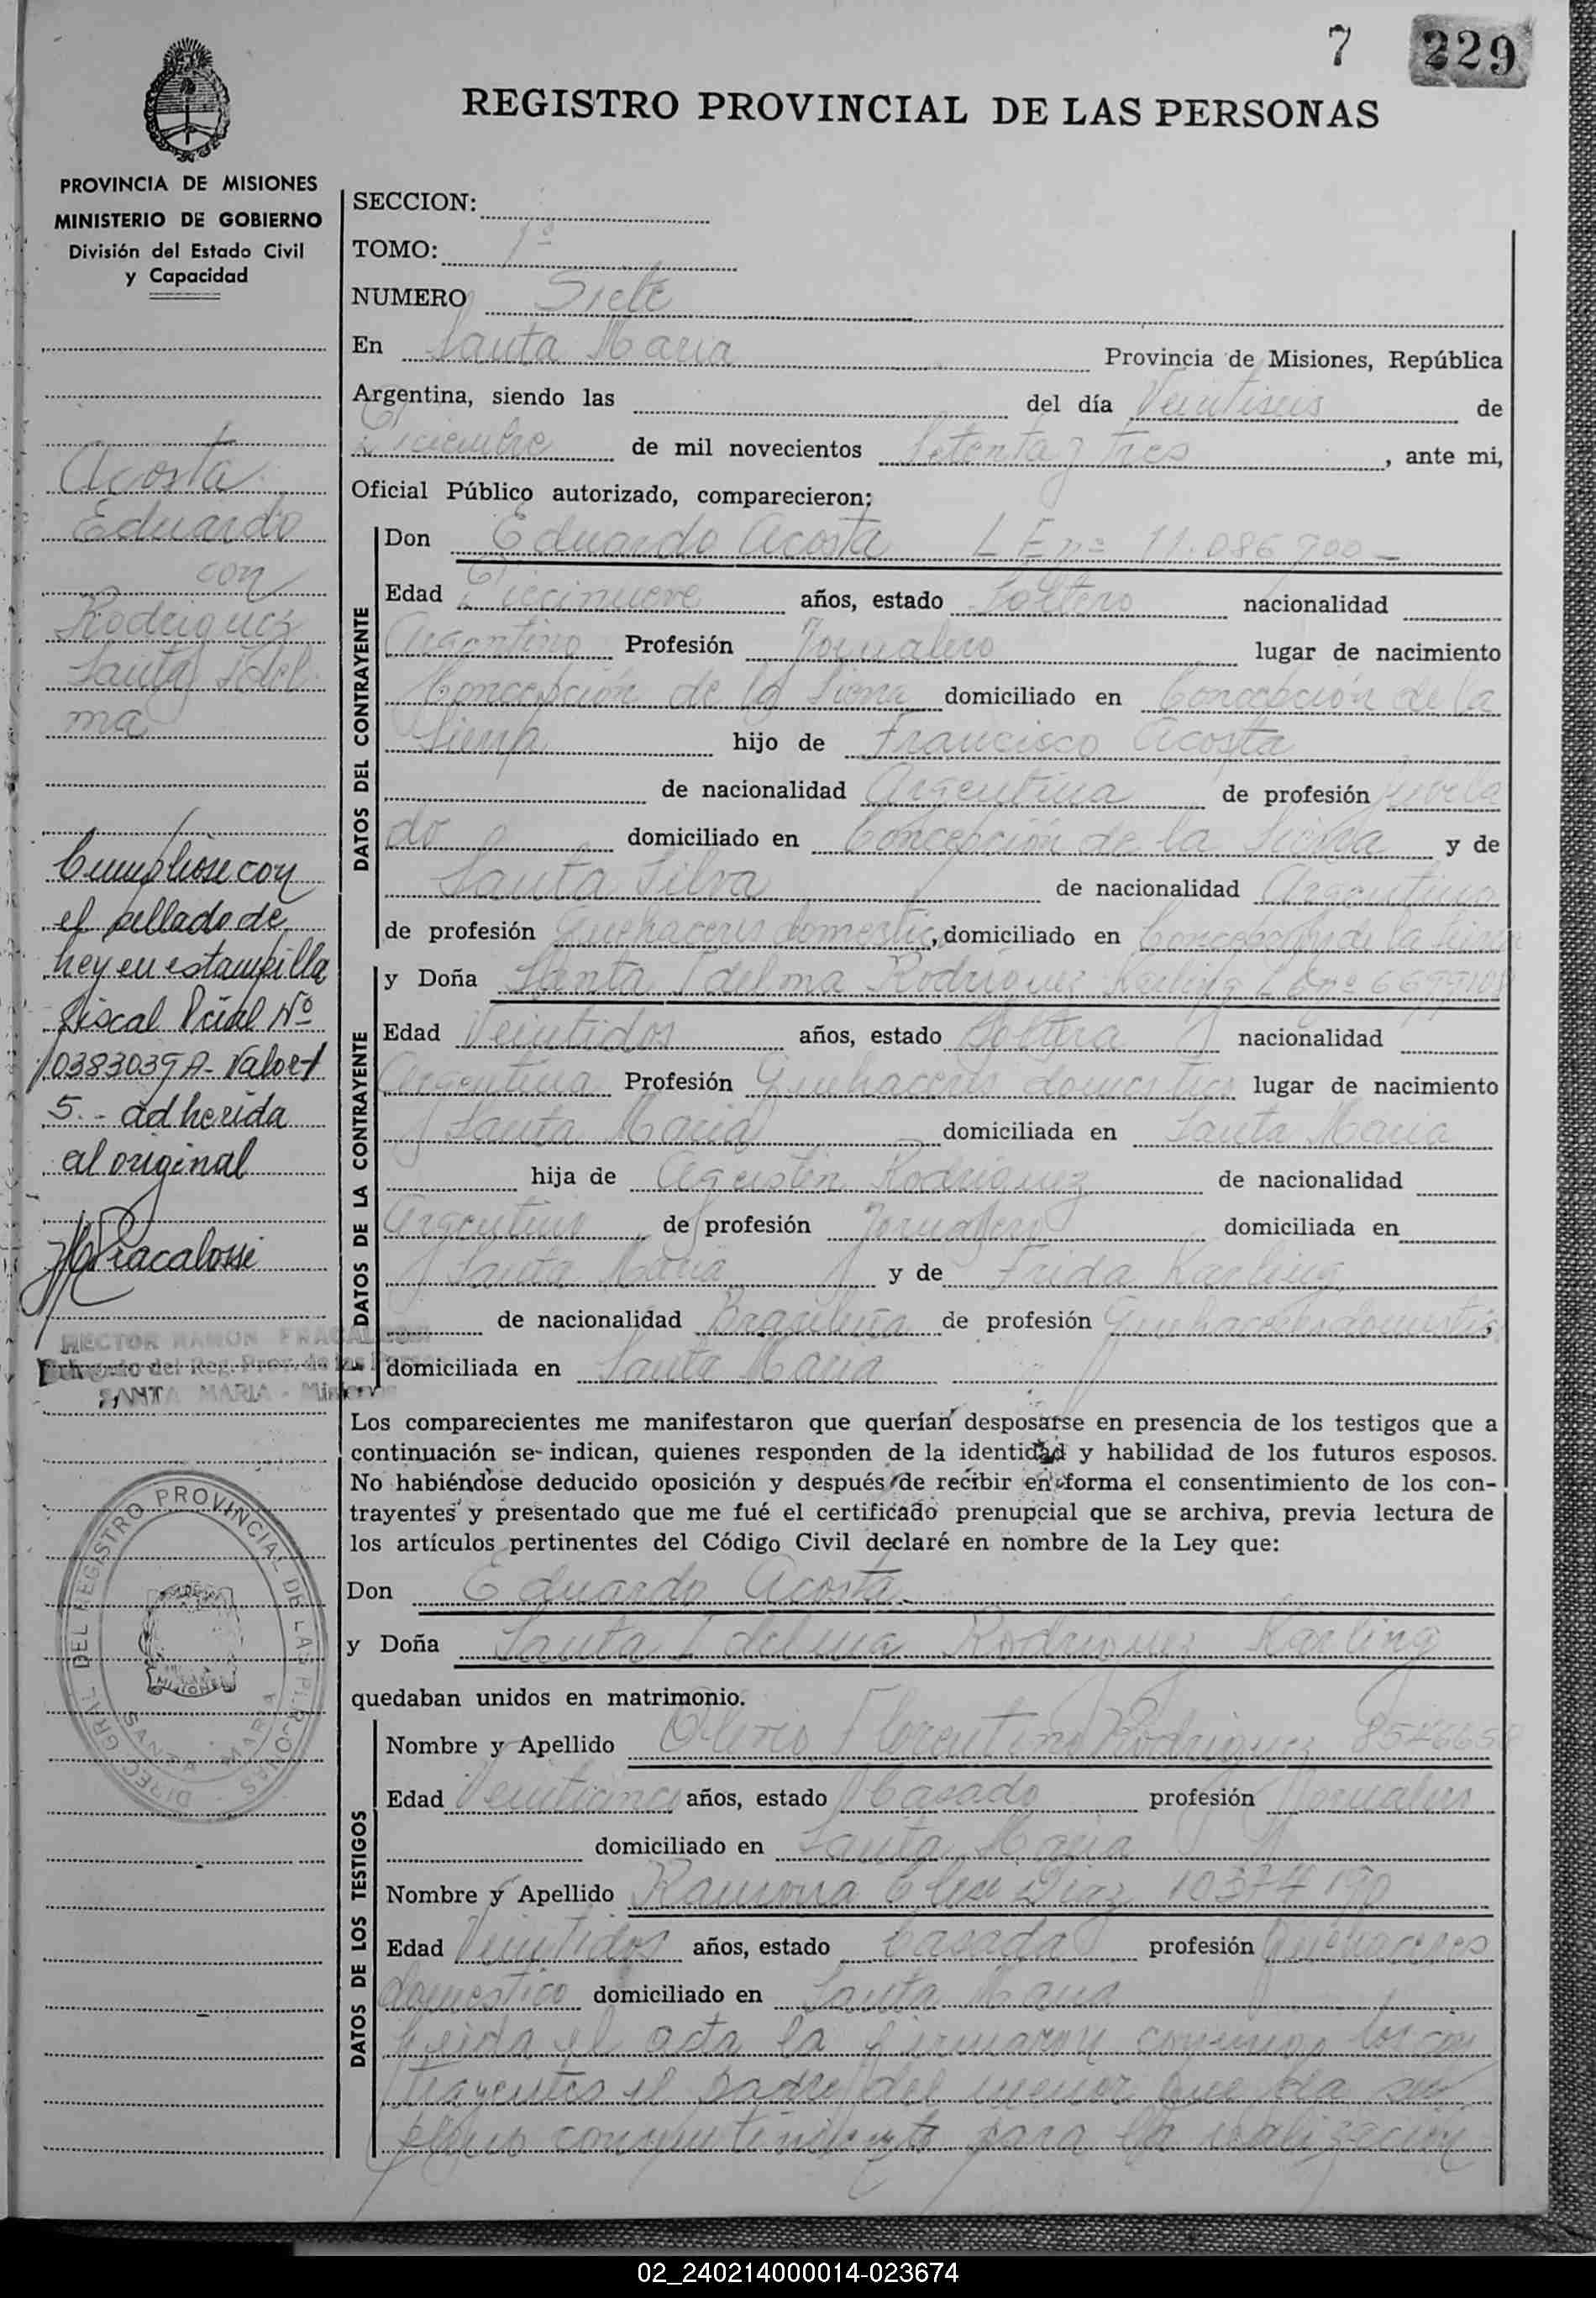 7 229
REGISTRO PROVINCIAL DE LAS PERSONAS
PROVINCIA DE MISIONES
MINISTERIO DE GOBIERNO
División del Estado Civil
y Capacidad
Acosta
Eduardo
con
Rodriguez
Santa Idel
ma
Cumpliose con
el sellado de
ley en estampilla
fiscal Pcial Nº
0383039 A - Valor $
5.- adherida
al original
HRFracalossi
HECTOR RAMON FRACALOSSI
Delegado del Reg. Prov. de las Pers.
SANTA MARIA - Misiones
DIREC. GRAL. DEL REGISTRO PROVINCIAL DE LAS PERSONAS
MISIONES
SANTA MARIA
SECCION:
TOMO: 1º
NUMERO Siete
En Santa Maria Provincia de Misiones, República
Argentina, siendo las del día Veintiseis de
Diciembre de mil novecientos Setenta y tres, ante mi,
Oficial Público autorizado, comparecieron:
DATOS DEL CONTRAYENTE
Don Eduardo Acosta L E nº 11.086.900 -
Edad Diecinueve años, estado Soltero nacionalidad
Argentino Profesión Jornalero lugar de nacimiento
Concepción de la Sierra domiciliado en Concepción de la
Sierra hijo de Francisco Acosta
de nacionalidad Argentina de profesión Jubila
do domiciliado en Concepción de la Sierra y de
Santa Silva de nacionalidad Argentina
de profesión Quehaceres domestic, domiciliado en Concepción de la Sierra
DATOS DE LA CONTRAYENTE
y Doña Santa Idelma Rodriguez Karling L C nº 6699108
Edad Veintidos años, estado Soltera nacionalidad
Argentina Profesión Quehaceres domesticos lugar de nacimiento
Santa Maria domiciliada en Santa Maria
hija de Agustin Rodriguez de nacionalidad
Argentino de profesión Jornalero domiciliada en
Santa Maria y de Frida Karling
de nacionalidad Brasileña de profesión Quehaceres domestic,
domiciliada en Santa Maria
Los comparecientes me manifestaron que querían desposarse en presencia de los testigos que a
continuación se indican, quienes responden de la identidad y habilidad de los futuros esposos.
No habiéndose deducido oposición y después de recibir en forma el consentimiento de los con-
trayentes y presentado que me fué el certificado prenupcial que se archiva, previa lectura de
los artículos pertinentes del Código Civil declaré en nombre de la Ley que:
Don Eduardo Acosta
y Doña Santa Idelma Rodriguez Karling
quedaban unidos en matrimonio.
DATOS DE LOS TESTIGOS
Nombre y Apellido Florentino Rodriguez
Edad Veinticinco años, estado Casado profesión Jornalero
domiciliado en Santa Maria
Nombre y Apellido Ramona Diaz 10374190
Edad Veintidos años, estado Casada profesión Quehaceres
domestico domiciliado en Santa Maria
Leida el acta la firmaron conmigo los con
trayentes el padre del menor que da su
pleno consentimiento para la realización
02_240214000014-023674